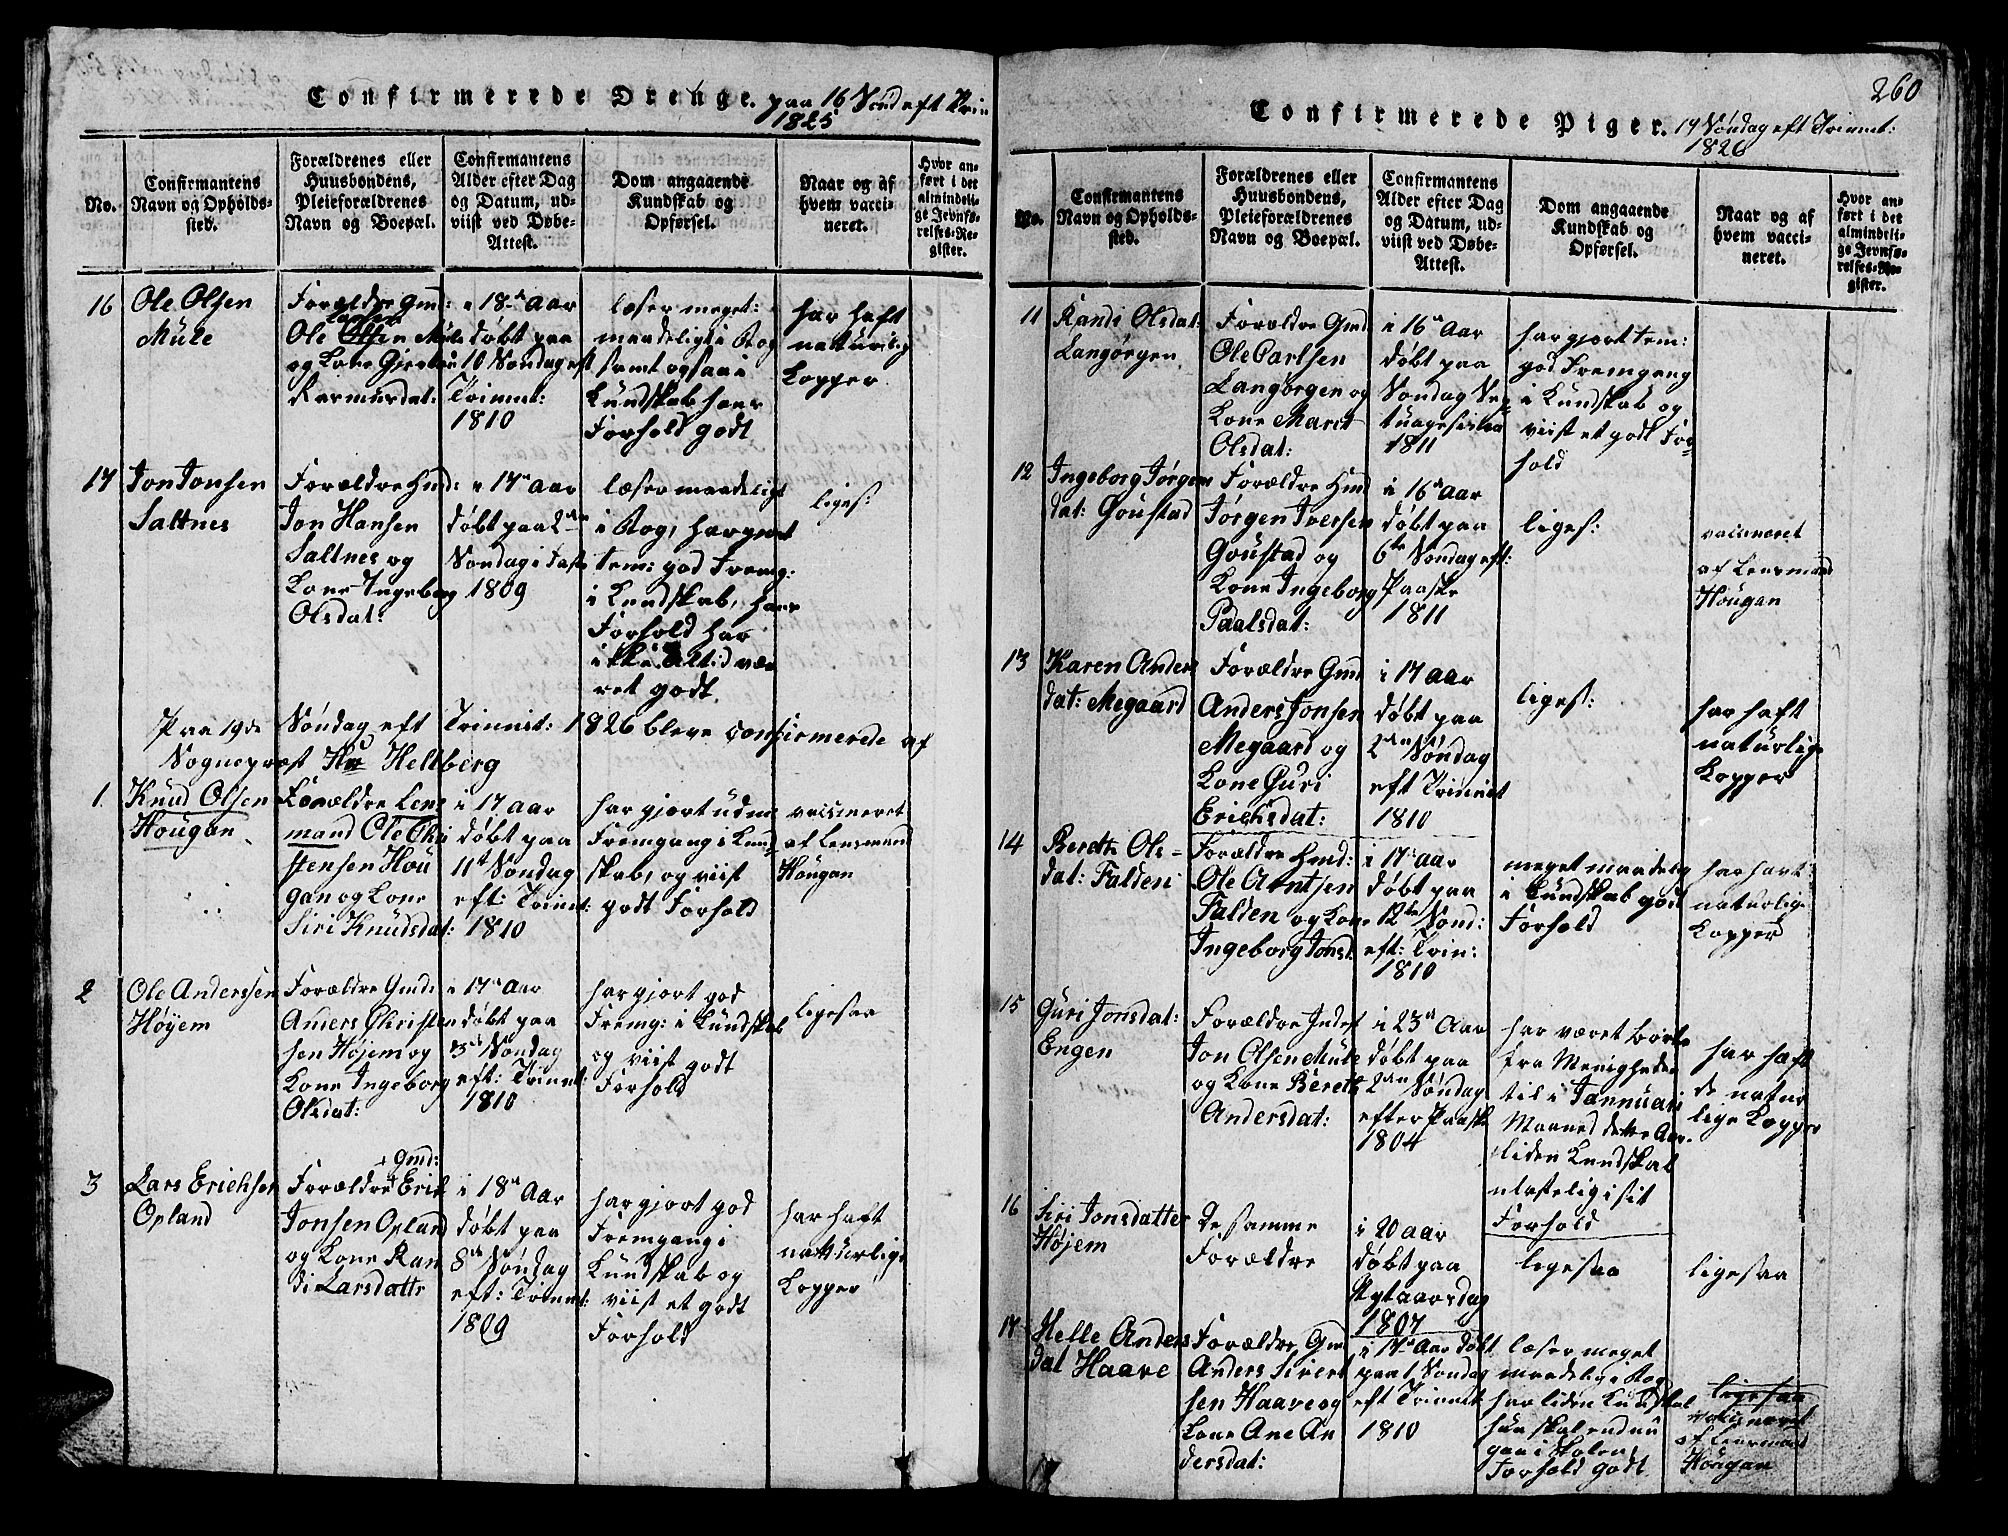 Confirmerede Drenge. paa 16 Sønd eft Trin
1825
No.
Confirmantens
Navn og Opholds-
sted.
Forældrenes eller
Huusbondens,
Pleieforældrenes
Navn og Boepæl.
Confirmantens
Alder efter Dag
og Datum, ud-
viist ved Døbe-
Attest.
Dom angaaende
Kundskab og
Opførsel.
Naar og af
hvem vacci-
neret.
Hvor an-
ført i det
almindeli-
ge Jevnfø-
relses-Re-
gister.
16
Ole Olsen
Mule
Forældre Gmd:
Ole Larsen Mule
og Kone Gjertru
Rasmusdat:
i 18de Aar
døbt paa
10 Søndag eft
Trinnit:
1810
læser meget:
maadelig i Bog
samt ogsaa i
Kundskab hans
Forhold godt
har haft
naturlig
Kopper
17
Jon Jonsen
Saltnes
Forældre Hmd:
Jon Hansen
Saltnes og
Kone Ingeborg
Olsdat:
i 17de Aar
døbt paa 2den
Søndag i Faste
1809
læser maadeligt
i Bog, har gjort
tem: god Fremg:
i Kundskab, hans
Forhold har
ikke altid væ
ret godt
liges:
Paa 19de Søndag eft Trinnit: 1826 bleve confirmerede af
Sognepræst Hr Hellberg
1.
Knud Olsen
Hougan
Forældre Lens
mand Ole Chri
stensen Hou
gan og Kone
Siri Knudsdat:
i 17 Aar
døbt paa
11te Søndag
eft: Trinnit:
1810
har gjort udm
Fremgang i Kund-
skab, og viist
godt Forhold
vaccineret
af Lensmand
Hougan
2
Ole Anderssen
Høyem
Forældre Gmd:
Anders Christen
sen Høiem og
Kone Ingeborg
Olsdat:
i 17de Aar
døbt paa
3die Søndag
eft: Trinnit:
1810
har gjort god
Fremg: i Kundskab
og viist godt
Forhold
ligesaa
3
Lars Erichsen
Opland
Gmd:
Forældre Erik
Jonsen Opland
og Kone Ran
di Larsdattr
i 18de Aar
døbt paa
8de Søndag
eft: Trinnit:
1809
har gjort god
Fremgang i
Kundskab og
viist et godt
Forhold
har haft
naturlige
Kopper
260
Confirmerede Piger. 19 Søndag eft Trinnit:
1826
No.
Confirmantens
Navn og Opholds-
sted.
Forældrenes eller
Huusbondens,
Pleieforældrenes
Navn og Boepæl.
Confirmantens
Alder efter Dag
og Datum, ud-
viist ved Døbe-
Attest.
Dom angaaende
Kundskab og
Opførsel.
Naar og af
hvem vacci-
neret.
Hvor an-
ført i det
almindeli-
ge Jevnfø-
relses-Re-
gister.
11
Randi Olsdat:
Langørgen
Forældre Gmd
Ole Carlsen
Langørgen og
Kone Marit
Olsdat:
i 16de Aar
døbt paa
Søndag Sep
tuagesima
1811
har gjort tem:
god Fremgang
i Kundskab og
viist et godt For-
hold
12
Ingeborg Jørgens
dat: Goustad
Forældre Hmd
Jørgen Iversen
Goustad og
Kone Ingeborg
Paalsdat:
i 16de Aar
døbt paa
6te Søndag eft:
Paaske
1811
liges:
vaccineret
af Lensmand
Hougan
13
Karen Anders
dat: Megaard
Forældre Gmd
Anders Jonsen
Megaard og
Kone Guri
Erichsdat:
i 17 Aar
døbt paa
2den Søndag
eft Trinnit
1810
liges:
har haft
naturlige
Kopper
14
Bereth Ols-
dat: Falden
Forældre Hmd:
Ole Arntsen
Falden og Kone
Ingeborg Jonsd.
i 17de Aar
døbt paa
12te Sønd:
eft: Trin:
1810
meget maadelig
i Kundskab godt
Forhold
har havt
naturlige
Kopper
15
Guri Jonsdat:
Engen
Forældre Inderst
Jon Olsen Mule
og Kone Bereth
Andersdat:
i 23de Aar
døbt paa
2den Søndag
efter Paaske
1804
har været borte
fra Menigheden
til i Jannuari
Maaned dette Aar.
liden Kundskab
ulastelig i sit
Forhold
har haft
de natur
lige Kopper
16
Siri Jonsdatter
Højem
de samme
Forældre
i 20 Aar
døbt paa
Nytaarsdag
1807
ligesaa
ligesaa
17
Helle Anders
dat Haave
Forældre, Gmd
Anders Sivert
sen Haave og
Kone Ane An
dersdat:
i 17de Aar døbt
paa 1 Søndag
eft Trinnit
1810
læser meget
maadelig i Bog
har liden Kundskab
hun skal endnu
gaa i Skolen,
Forhold godt
ligesaa
vaccineret
af Lensmand
Hougan